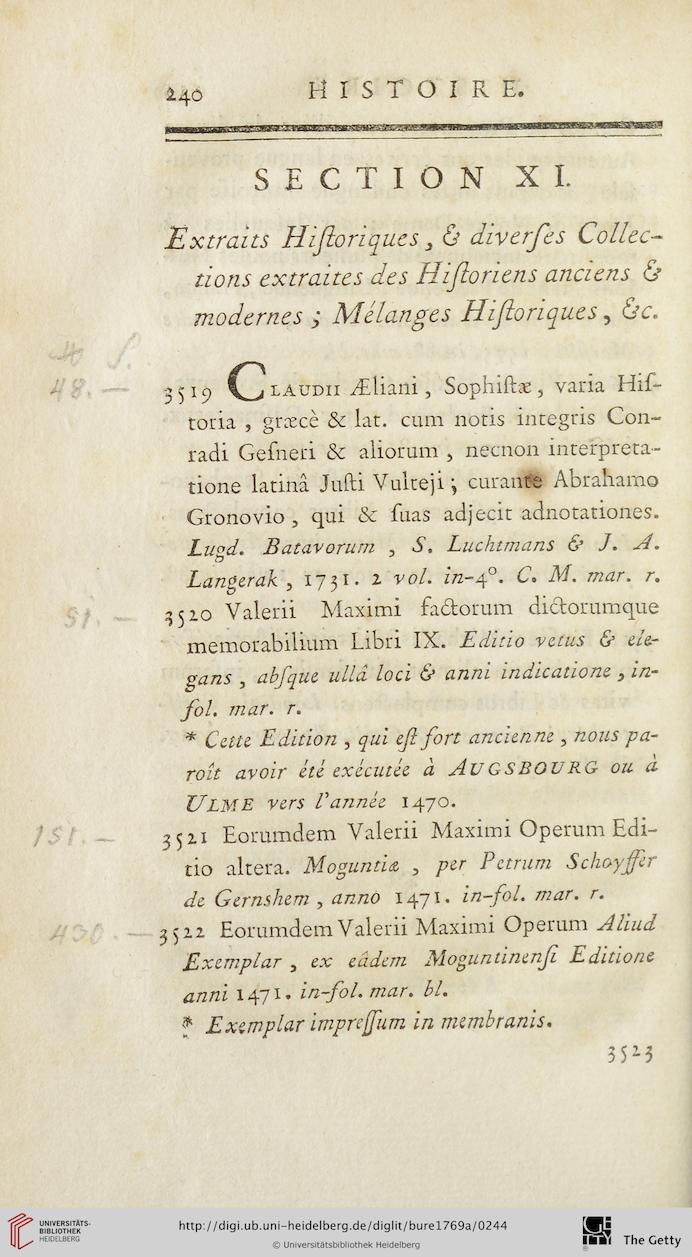 240 HISTOIRE.
SECTION XI.
Extraits Hiſtoriques, & diverſes Collec-
tions extraites des Hiſtoriens anciens &
modernes ; Mélanges Hiſtoriques, &c.
48. —
3519 CLAUDII Æliani, Sophiſtæ, varia Hiſ-
toria, græcè & lat. cum notis integris Con-
radi Geſneri & aliorum, necnon interpreta-
tione latinâ Juſti Vulteji; curante Abrahamo
Gronovio, qui & ſuas adjecit adnotationes.
Lugd. Batavorum, S. Luchtmans & J. A.
Langerak, 1731. 2 vol. in-4°. C. M. mar. r.
51. — 3520 Valerii Maximi factorum dictorumque
memorabilium Libri IX. Editio vetus & ele-
gans, abſque ullâ loci & anni indicatione, in-
fol. mar. r.
* Cette Edition, qui eſt fort ancienne, nous pa-
roît avoir été exécutée à AUGSBOURG ou à
ULME vers l'année 1470.
151. — 3521 Eorumdem Valerii Maximi Operum Edi-
tio altera. Moguntiæ, per Petrum Schoyffer
de Gernshem, anno 1471. in-fol. mar. r.
430. — 3522 Eorumdem Valerii Maximi Operum Aliud
Exemplar, ex eâdem Moguntinenſi Editione
anni 1471. in-fol. mar. bl.
* Exemplar impreſſum in membranis.
3523
UNIVERSITÄTS-
BIBLIOTHEK
HEIDELBERG
http://digi.ub.uni-heidelberg.de/diglit/bure1769a/0244
© Universitätsbibliothek Heidelberg
The Getty